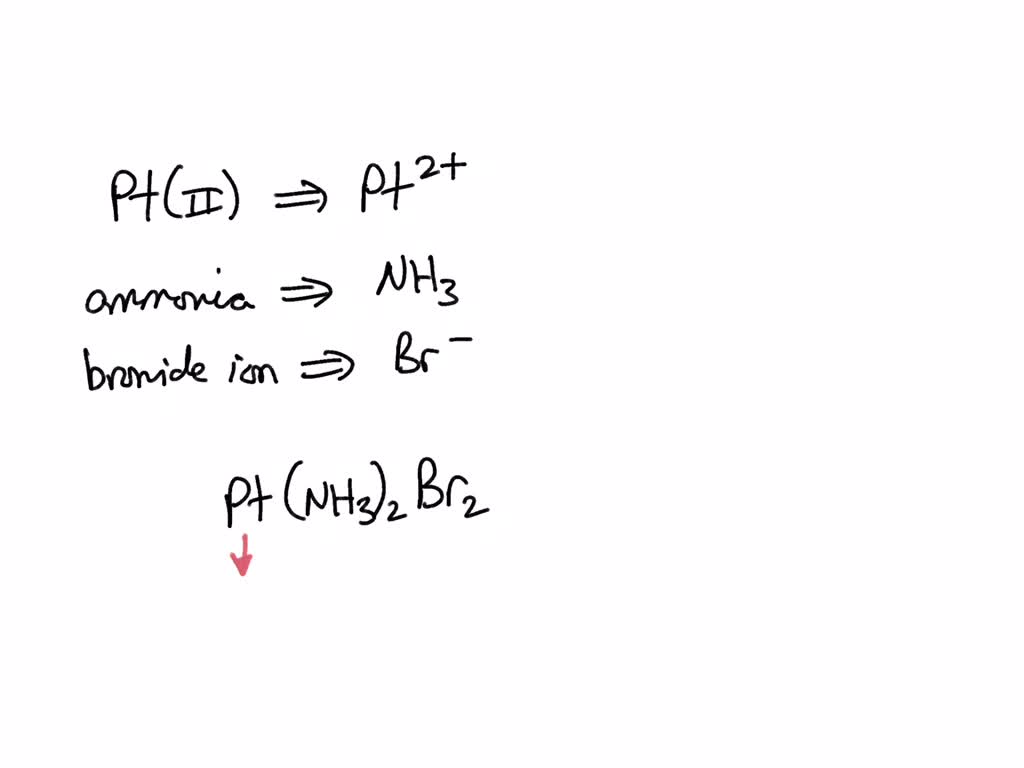 Pt(II) ⇒ Pt²⁺
ammonia ⇒ NH₃
bromide ion ⇒ Br⁻
Pt(NH₃)₂Br₂